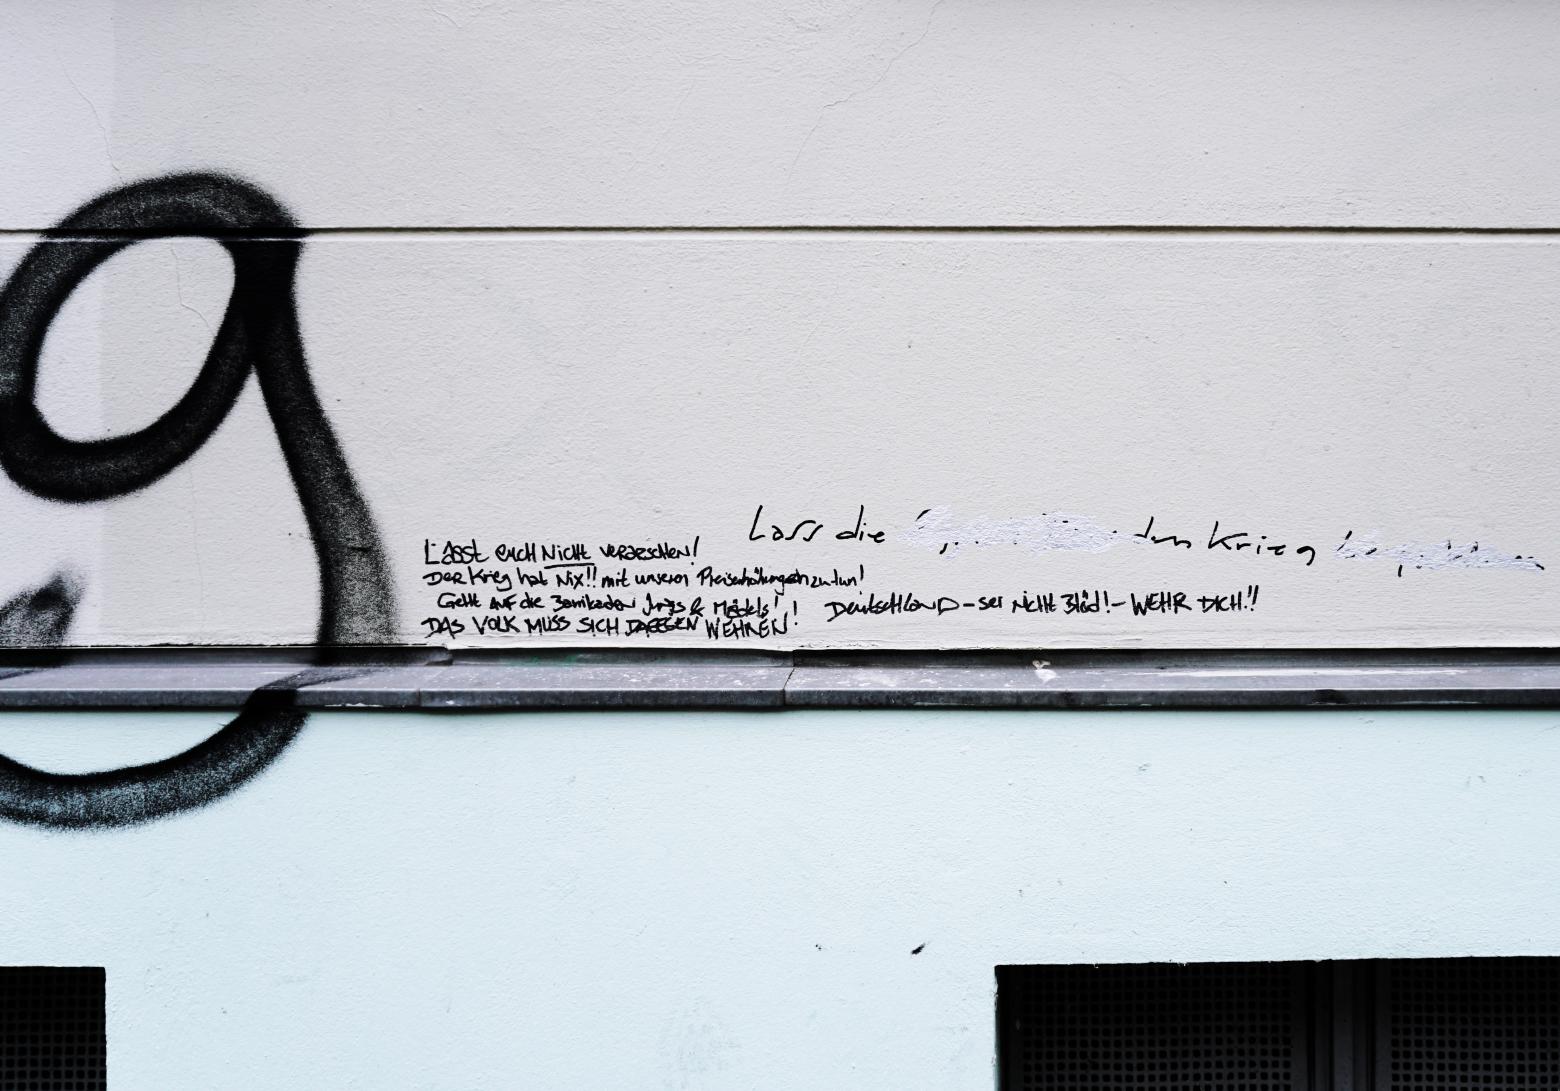 Lass die den Krieg
Lasst euch Nicht verarschen!
Der Krieg hat Nix!! mit unseren Preiserhöhungen zu tun!
Geht AUF die Barrikaden Jungs & Mädels!
DAS VOLK MUSS SICH DAGEGEN WEHREN!
DeutschLanD - sei Nicht Blöd! - WEHR DICH!!